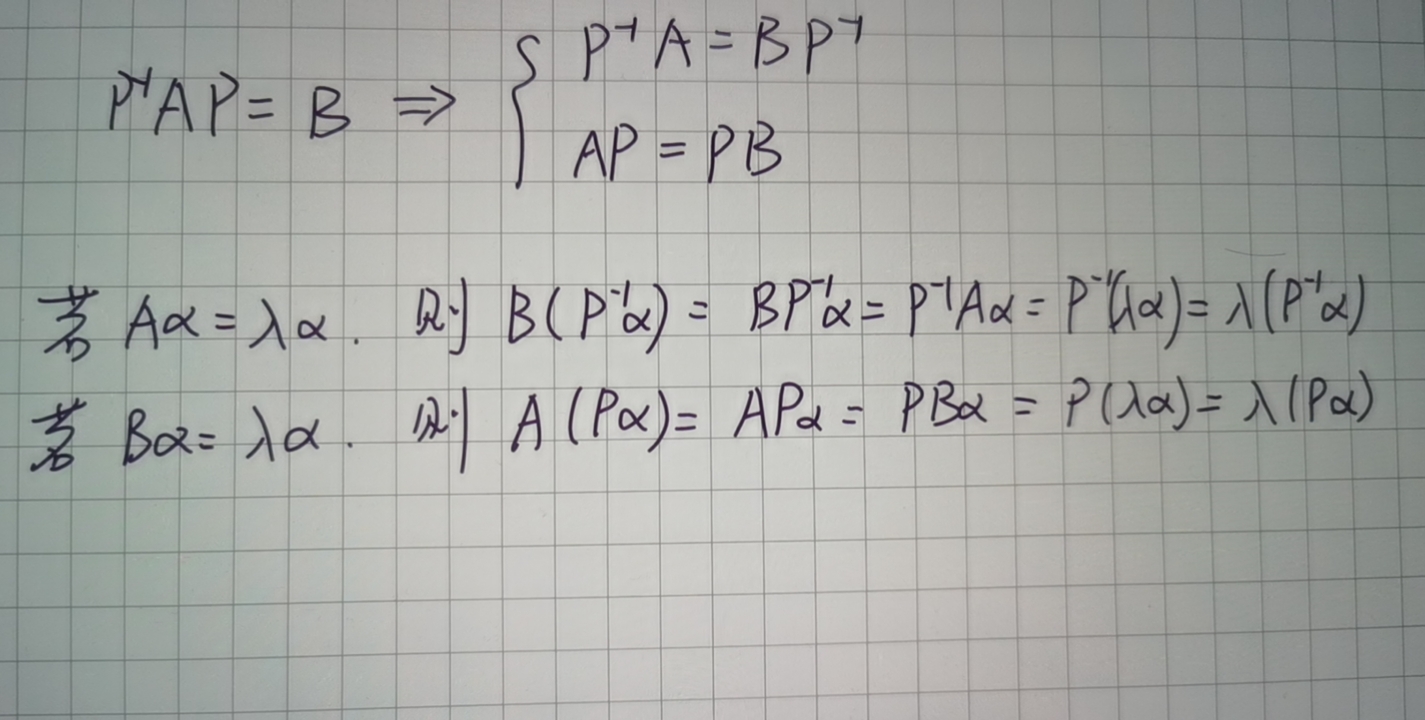 P⁻¹AP = B ⇒ { P⁻¹A = BP⁻¹
AP = PB
若 Aα = λα. 则 B(P⁻¹α) = BP⁻¹α = P⁻¹Aα = P⁻¹(λα) = λ(P⁻¹α)
若 Bα = λα. 则 A(Pα) = APα = PBα = P(λα) = λ(Pα)